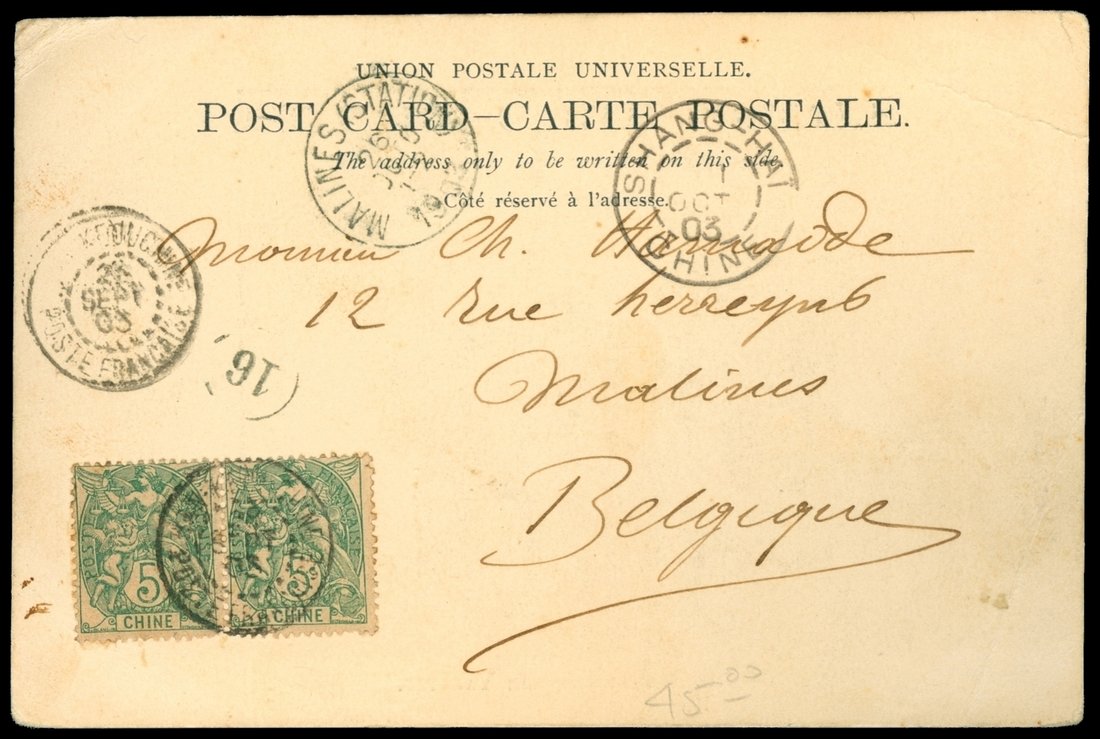 UNION POSTALE UNIVERSELLE.
POST CARD–CARTE POSTALE.
The address only to be written on this side.
Côté réservé à l'adresse.
MALINES (STATION)
26
SHANG-HAI
1
OCT
03
CHINE
SEPT
03
POSTE FRANÇAISE
16
Monsieur Ch.
12 rue
Malines
Belgique
POSTE FRANÇAISE
5 5
CHINE CHINE
45.00